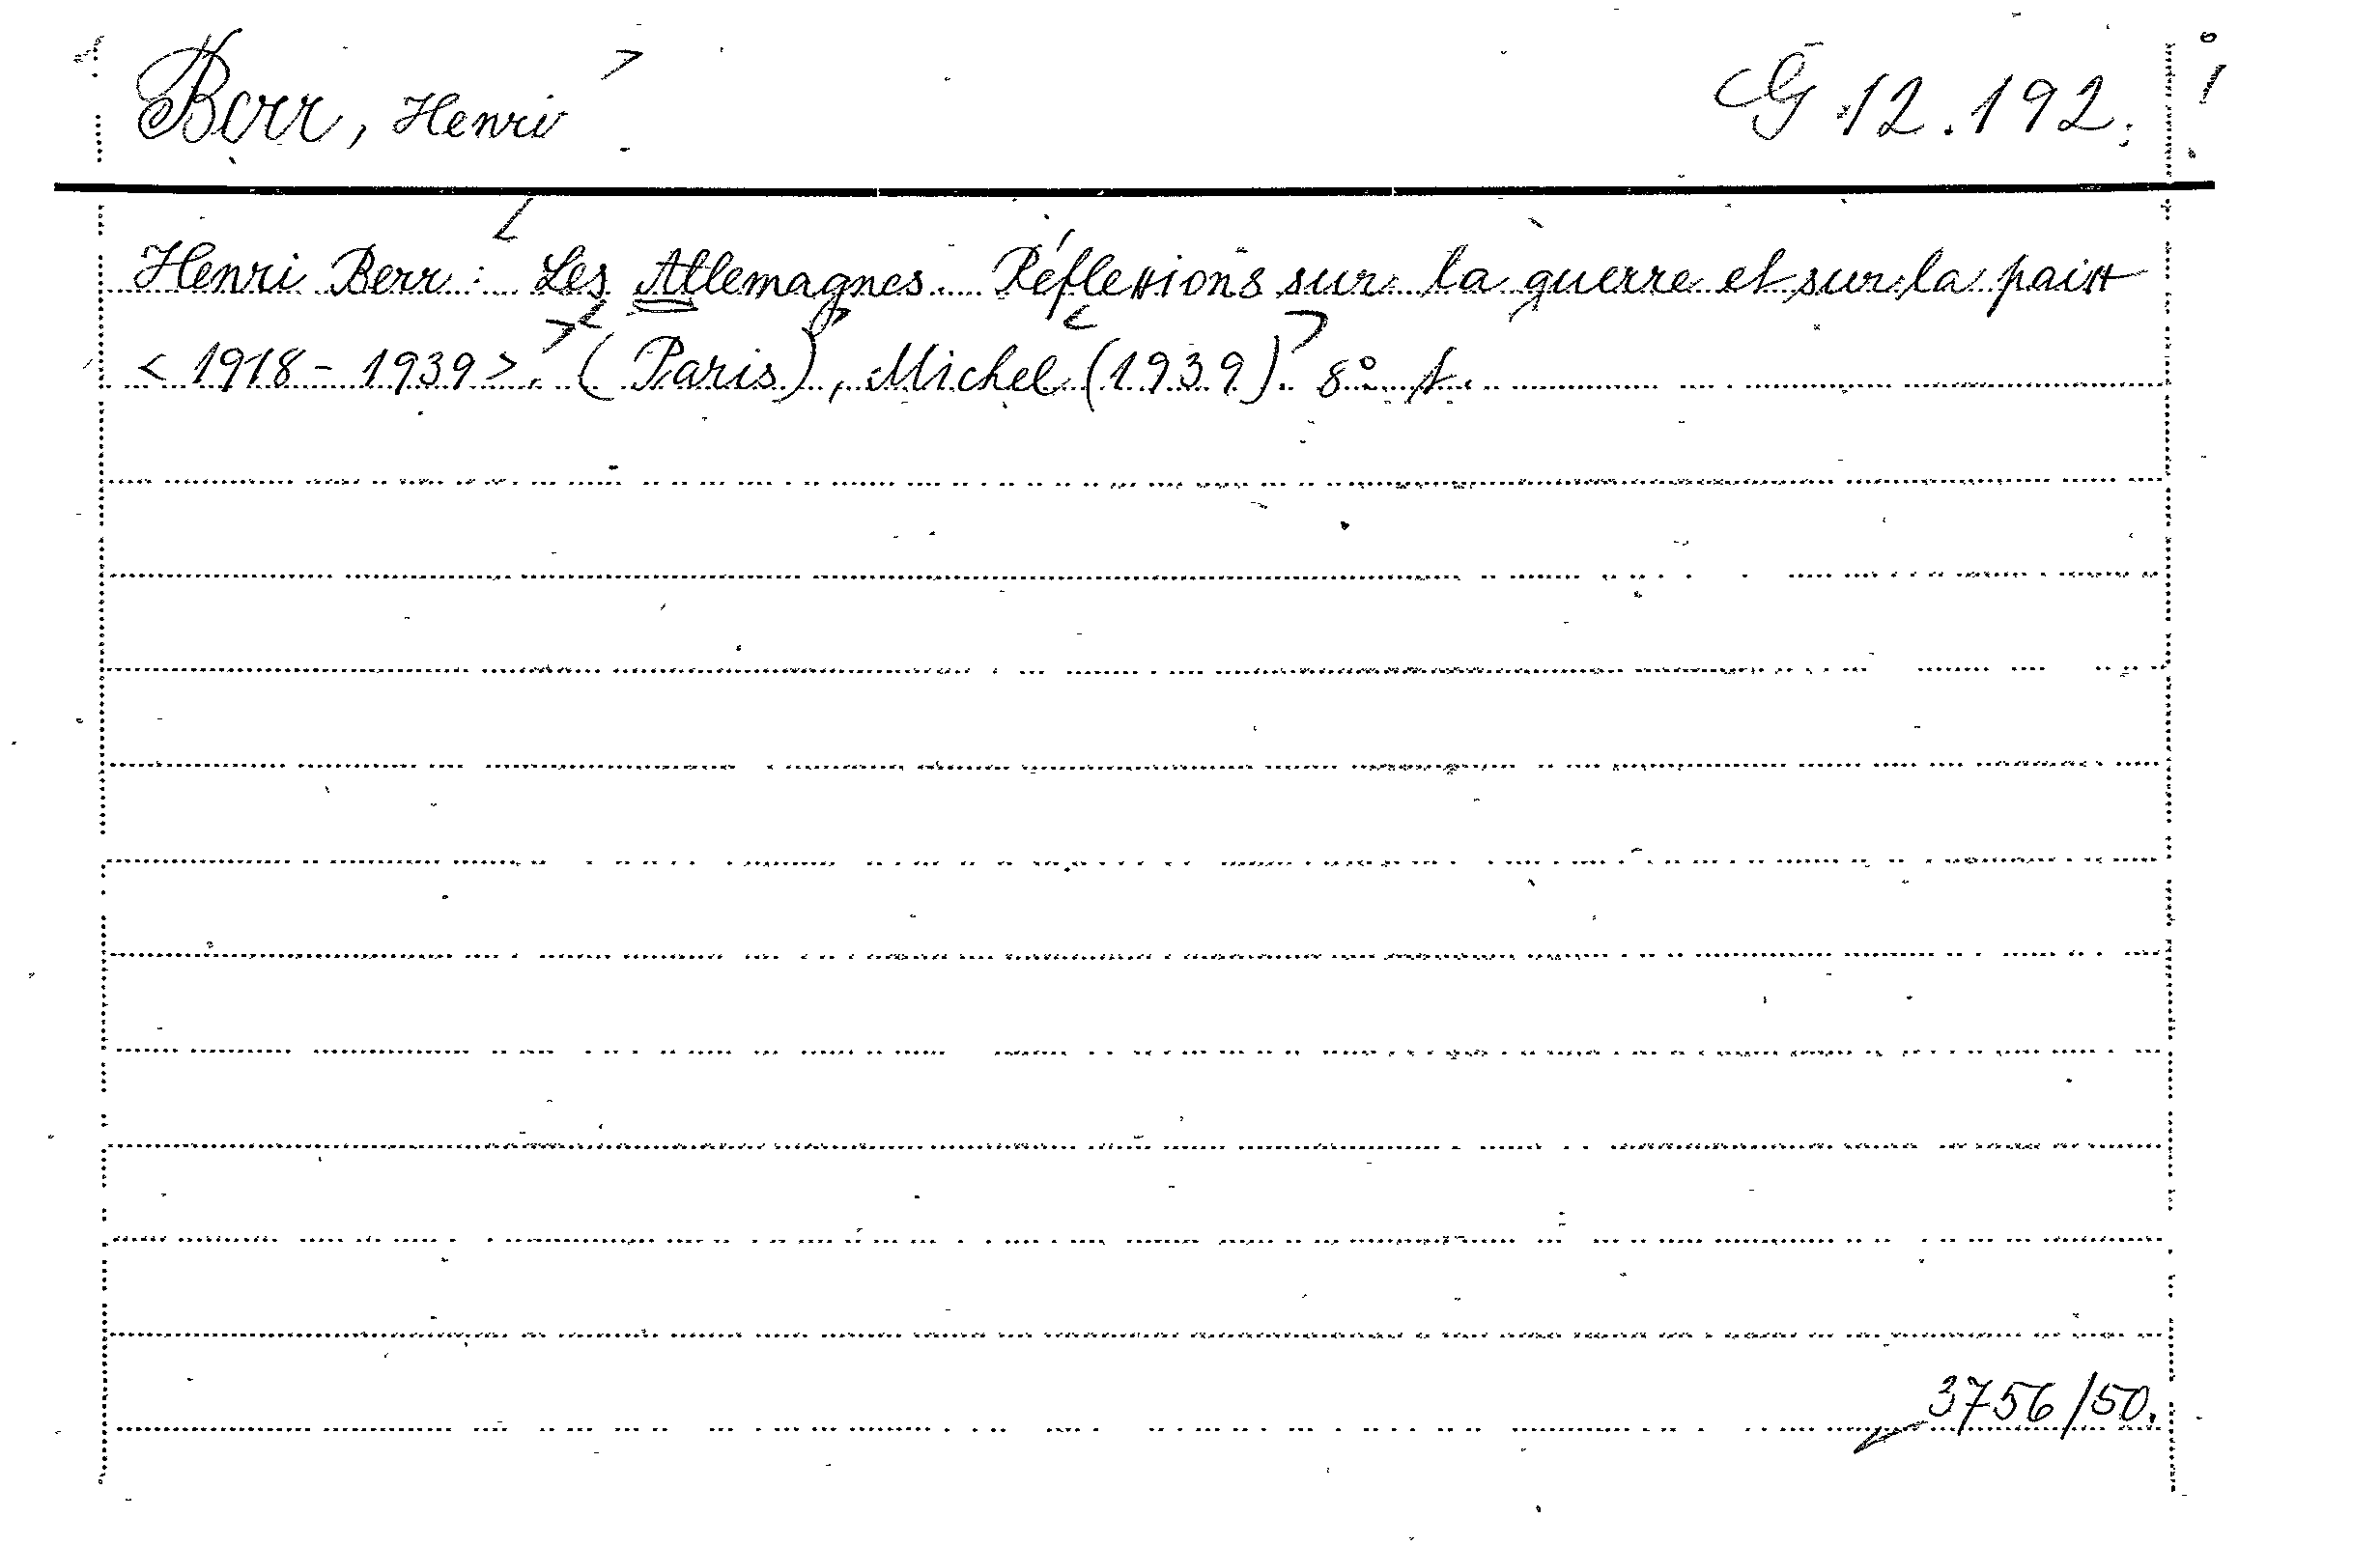 Berr, Henri G 12.192.
Henri Berr: Les Allemagnes. Réflexions sur la guerre et sur la paix
<1918-1939>. (Paris), Michel (1939). 8°
3756/50.